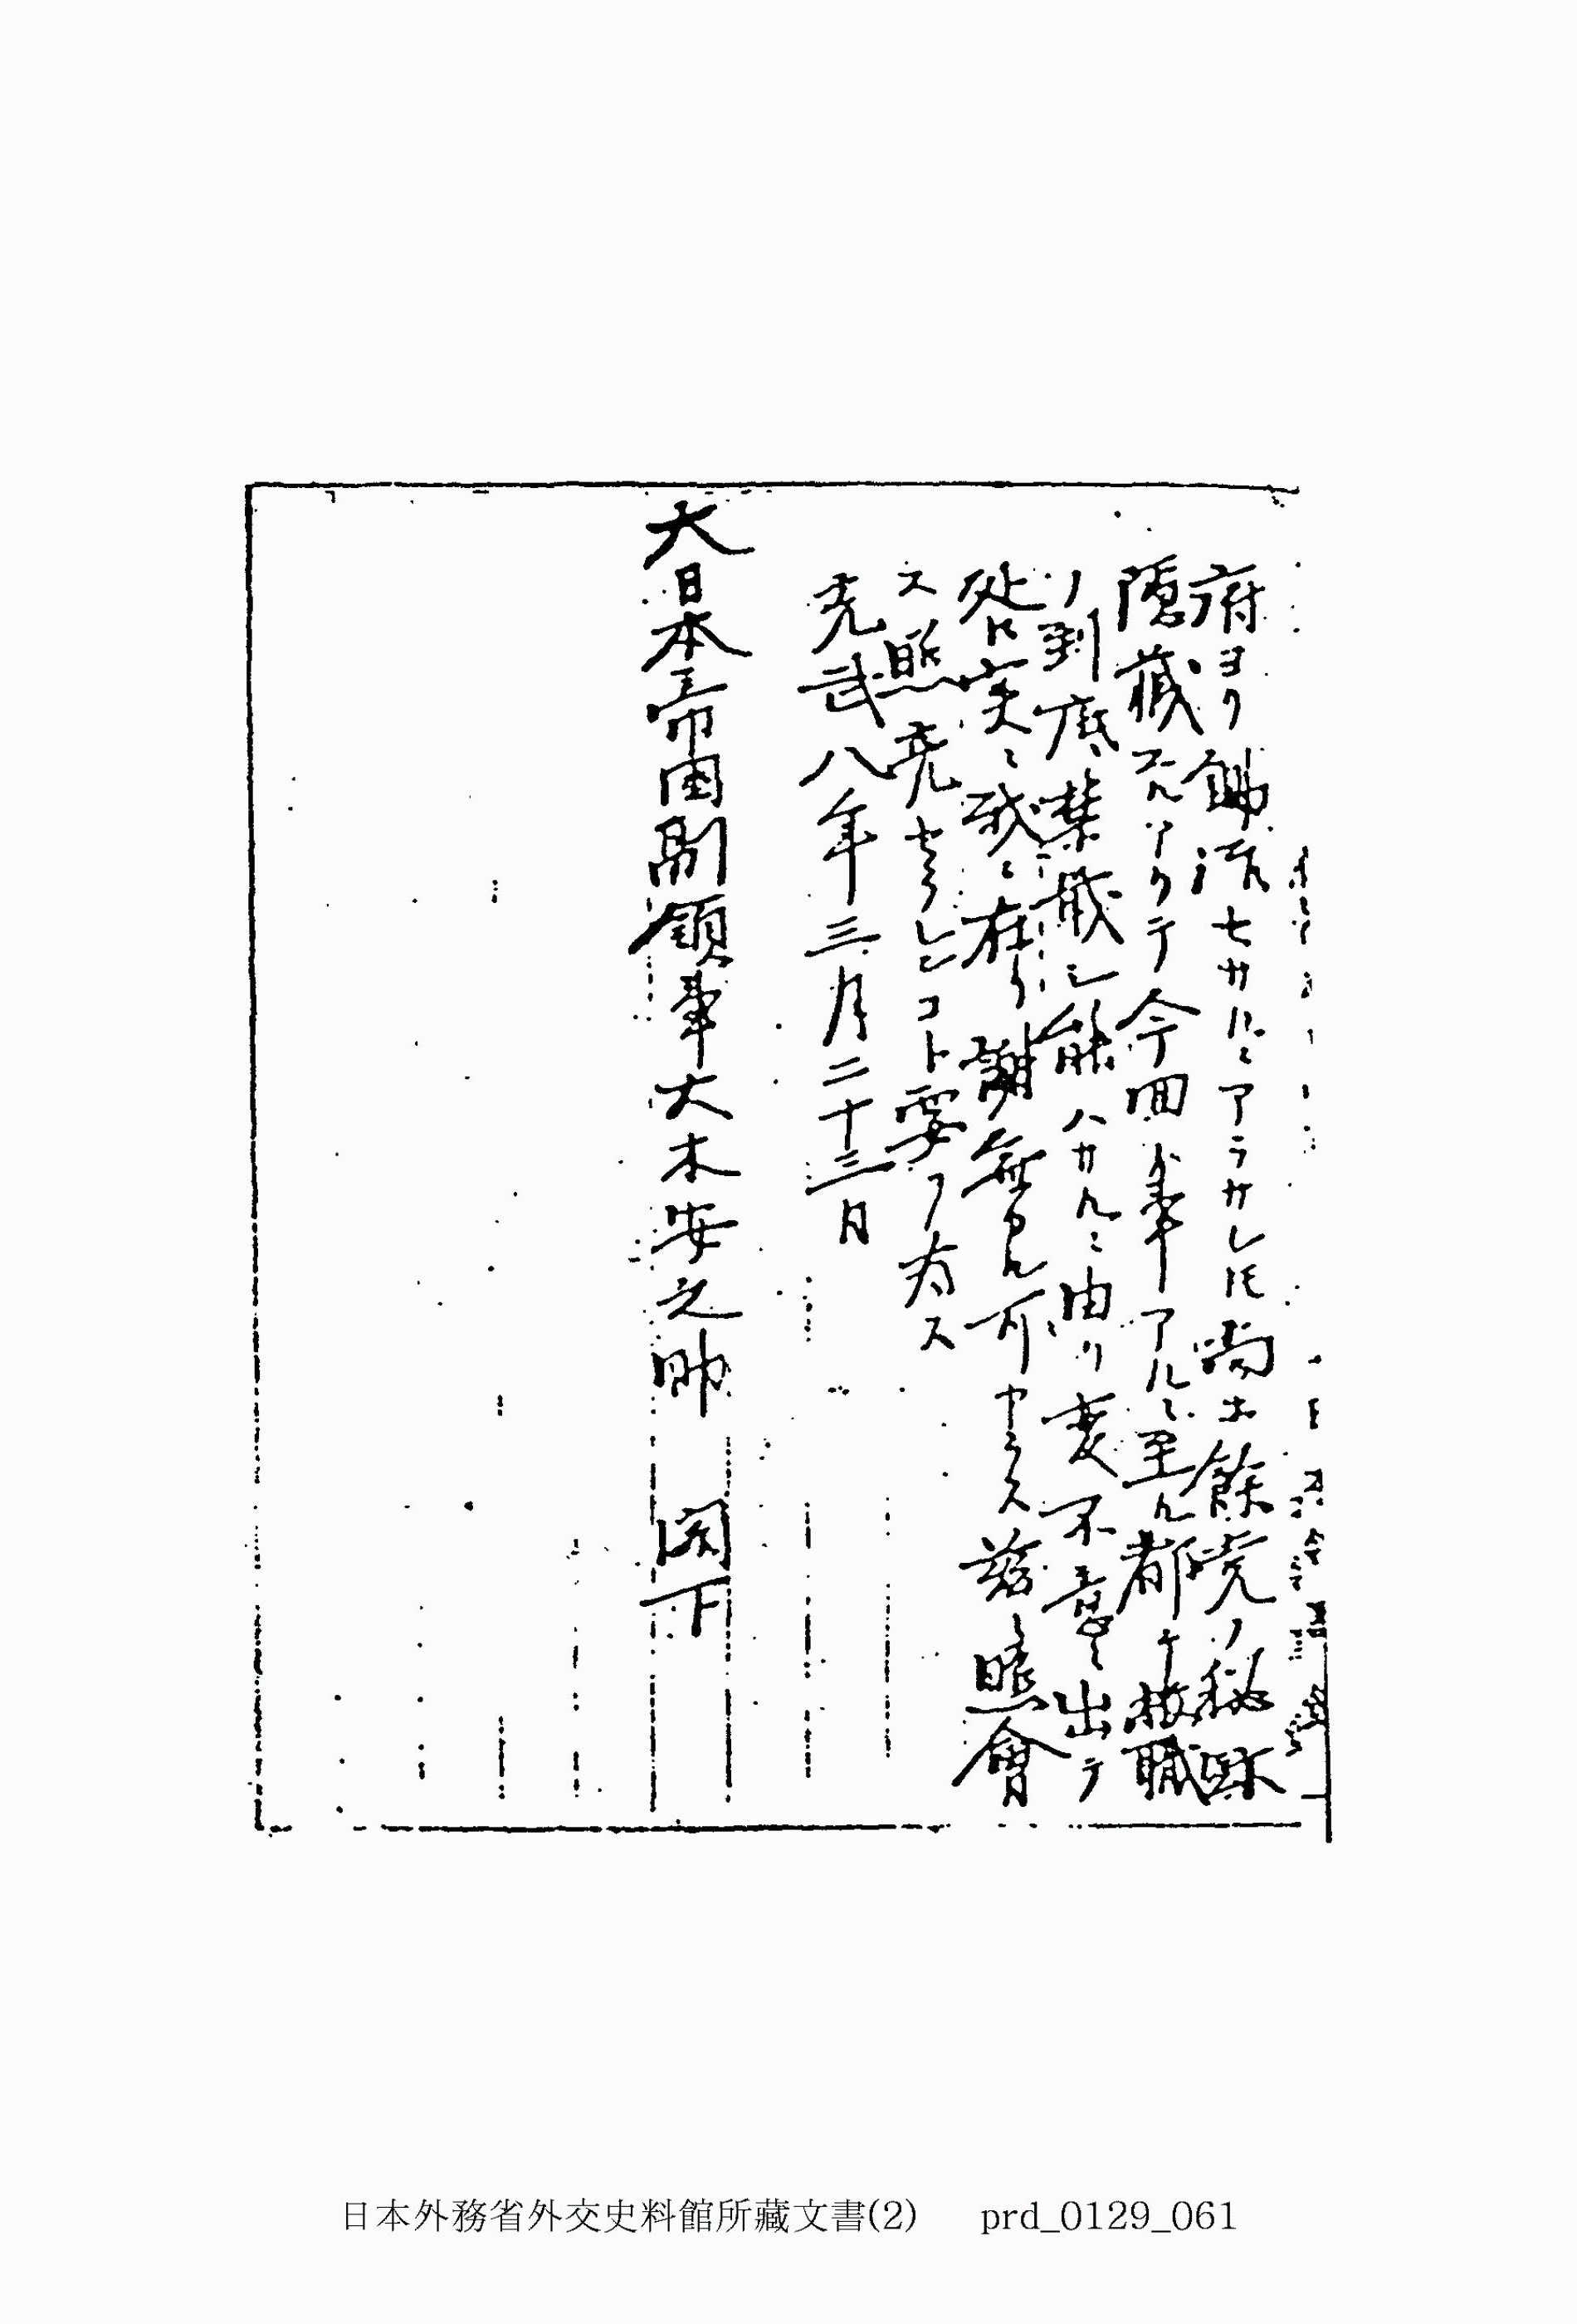 府ヨリ飭流セサルニアラサレ𪜈尚ホ餘党ノ秘跡
隠蔵スルアリテ今回ノ事アルニ至ル都テ枚職
ノ到底禁戢シ能ハサルニ由リ変不意ニ出テ
咎実ニ我ニ在リ謝無カル可ヤラス茲ニ照會
ス照亮セラレンコト要フ為ス
光武八年三月二十三日
大日本帝国副領事大木安之助 閣下
日本外務省外交史料館所藏文書(2) prd_0129_061